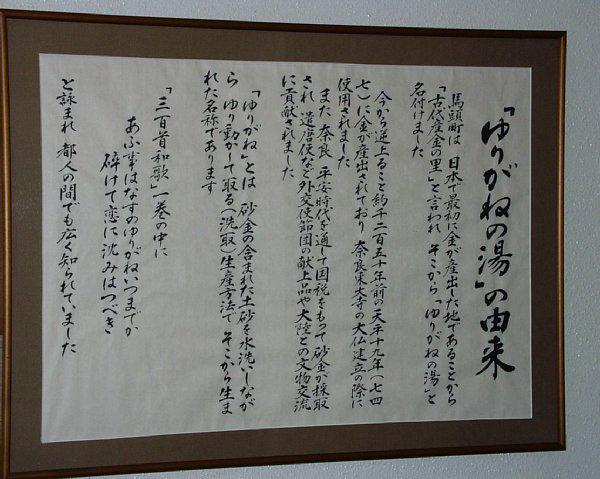 「ゆりがねの湯」の由来
馬頭町は 日本で最初に金が産出した地であることから
「古代産金の里」と言われ そこから「ゆりがねの湯」と
名付けました
今から遡上ること約千二百五十年前の天平十九年(七四
七)に金が産出されており 奈良東大寺の大仏建立の際に
使用されました
また 奈良・平安時代を通して国税をもって砂金が採取
され 遣唐使など外交使節団の献上品や大陸との文物交流
に貢献されました
「ゆりがね」とは 砂金の含まれた土砂を水洗いしなが
ら ゆり動かして取る(洗取)生産方法で そこから生ま
れた名称であります
「三百首和歌」一巻の中に
あふ事はなすのゆりがねいつまでか
砕けて恋に沈みはつべき
と詠まれ 都人の間でも広く知られていました